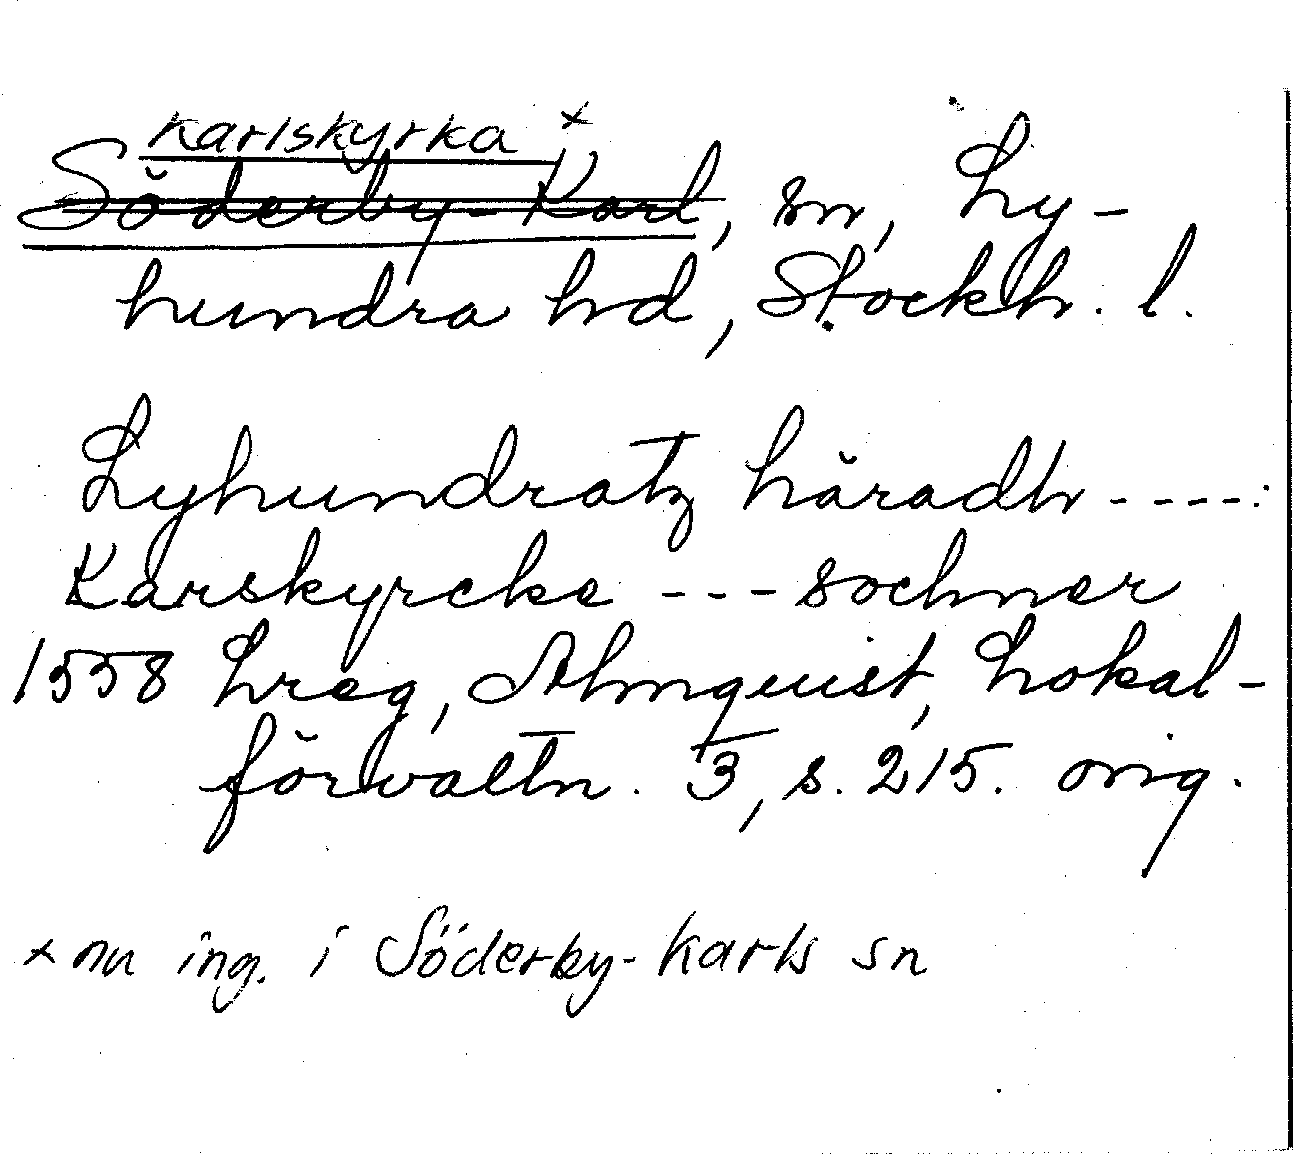 Karlskyrka x
Söderby-Karl, sn, Ly-
hundra hd, Stockh. l.
Lyhundratz häradh ----:
Karskyrcke --- sochner
1558 Lreg, Almquist, Lokal-
förvaltn. 3, s. 215. orig.
x nu ing. i Söderby-Karls sn